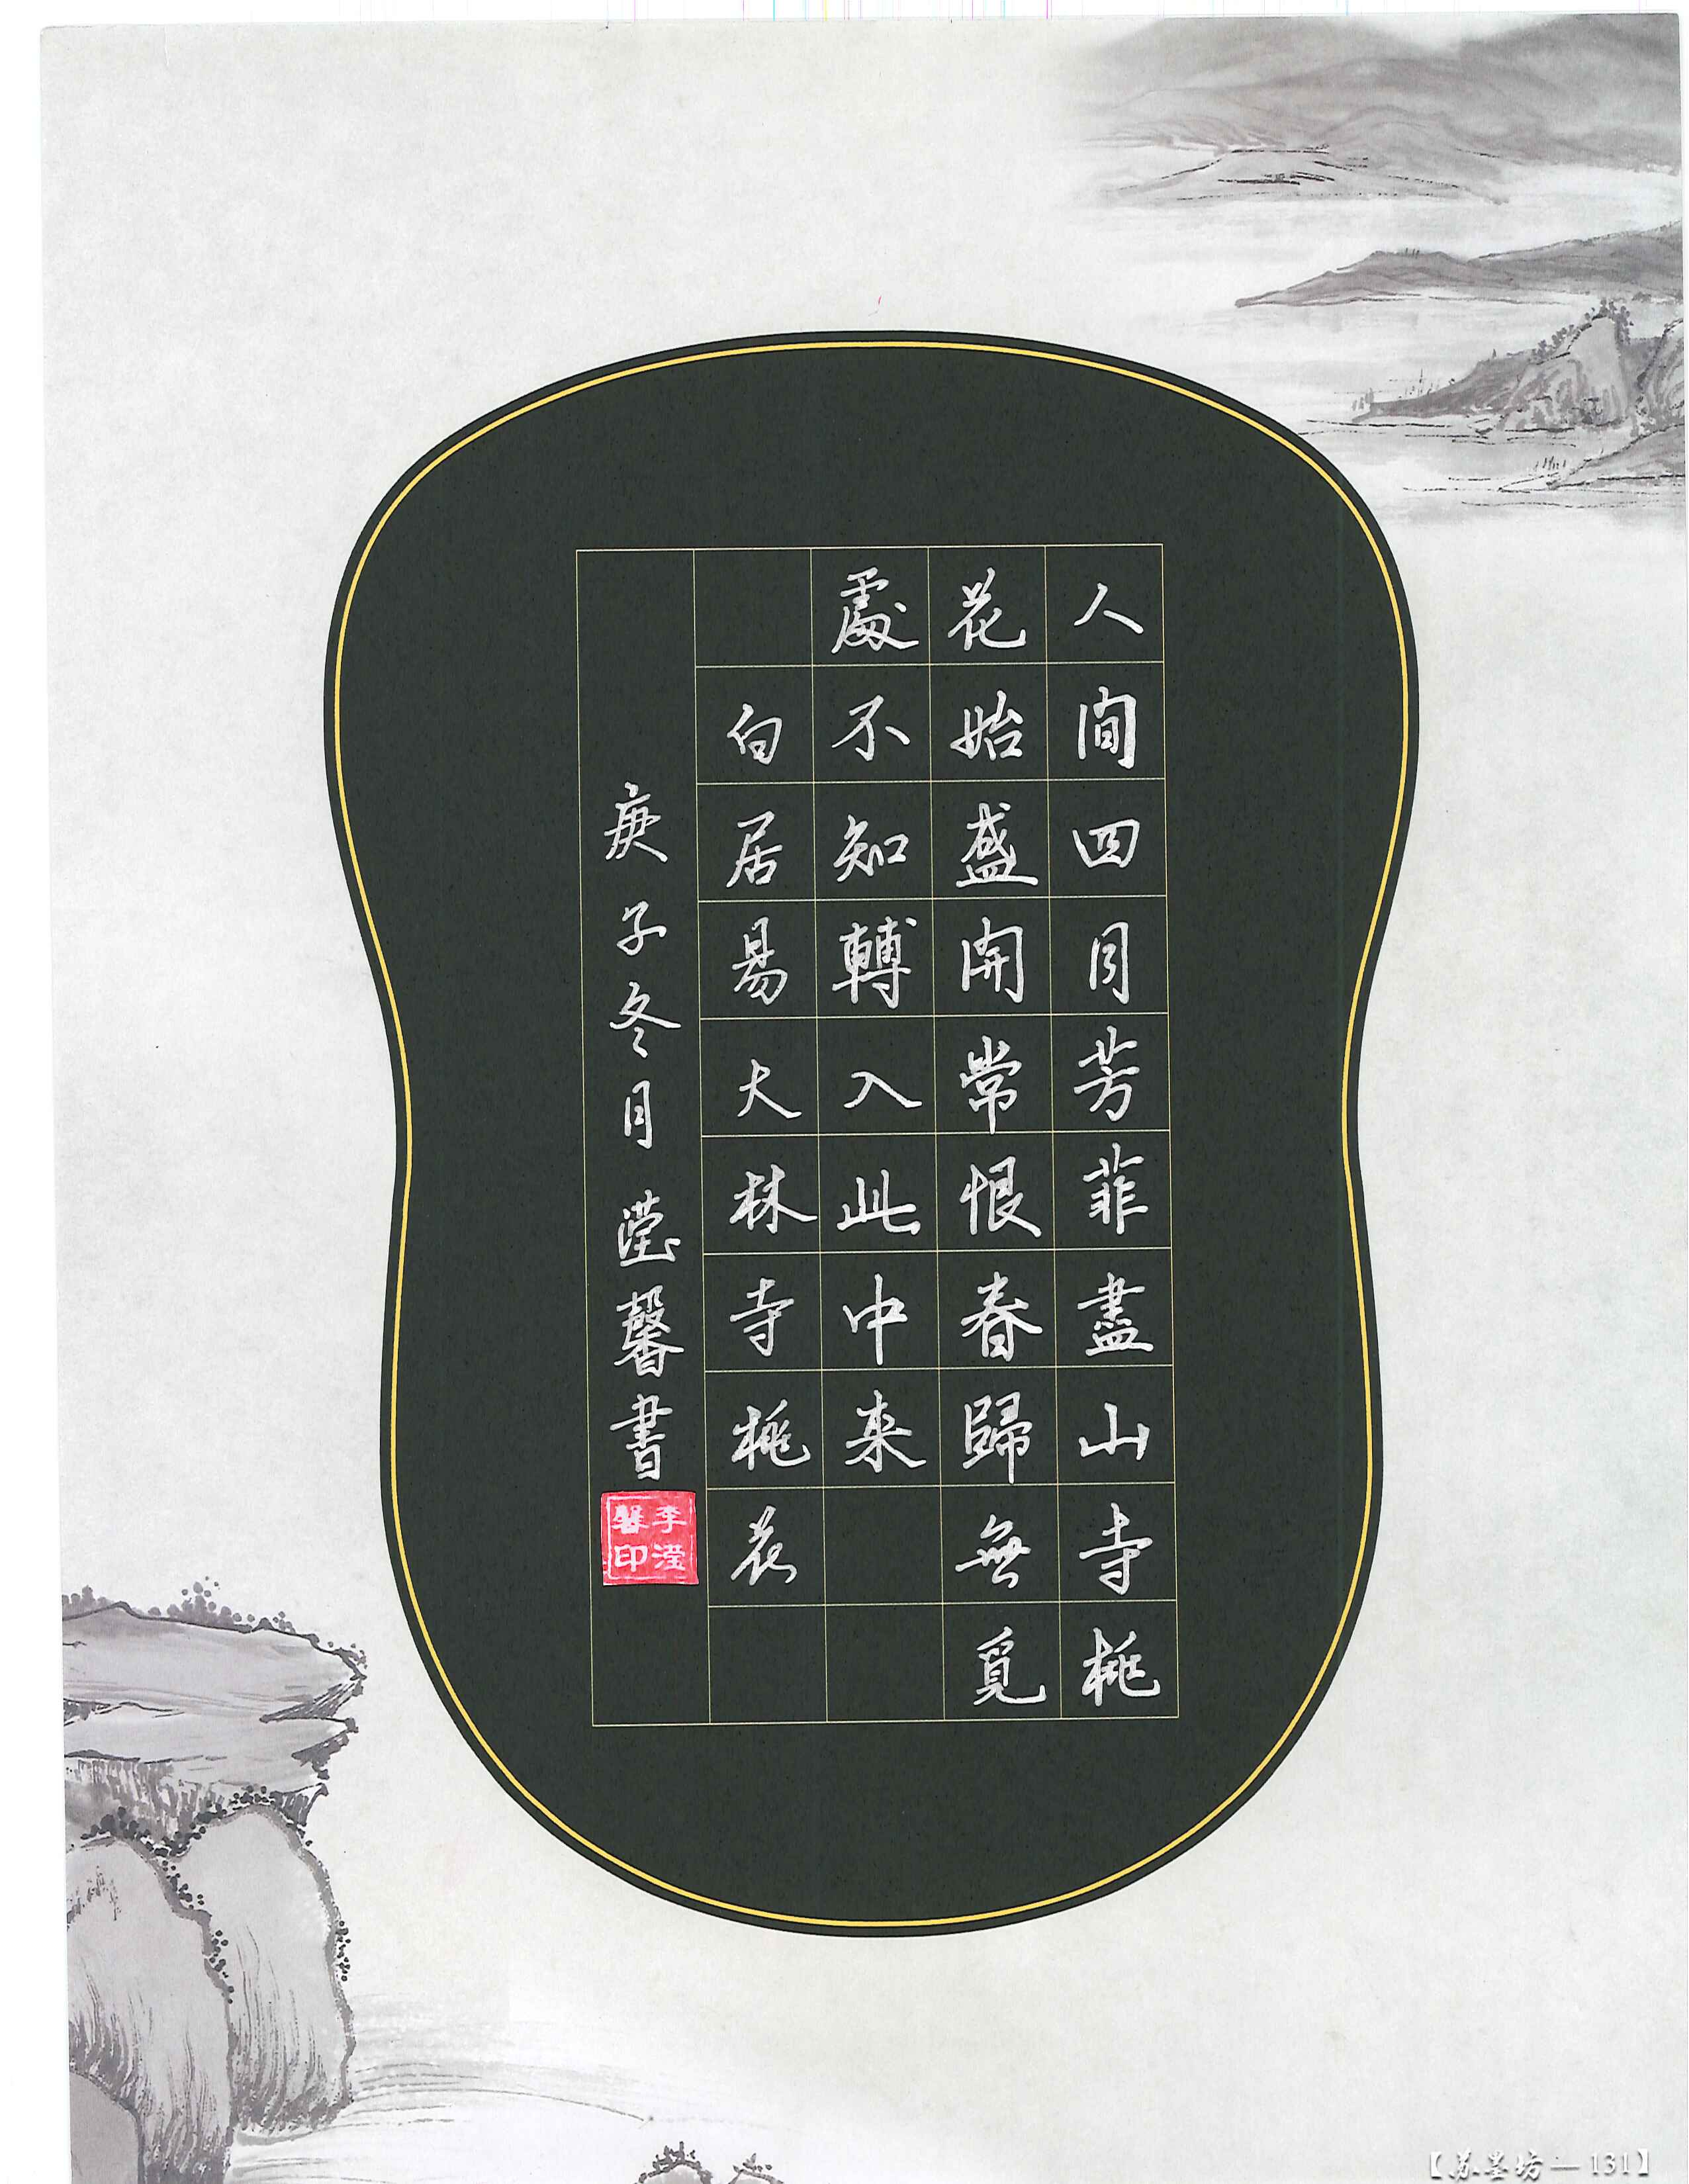 人間四月芳菲盡山寺桃
花始盛開常恨春歸無覓
處不知轉入此中来
白居易大林寺桃花
庚子冬月 滢馨書
李滢馨印
【苏墨坊—131】